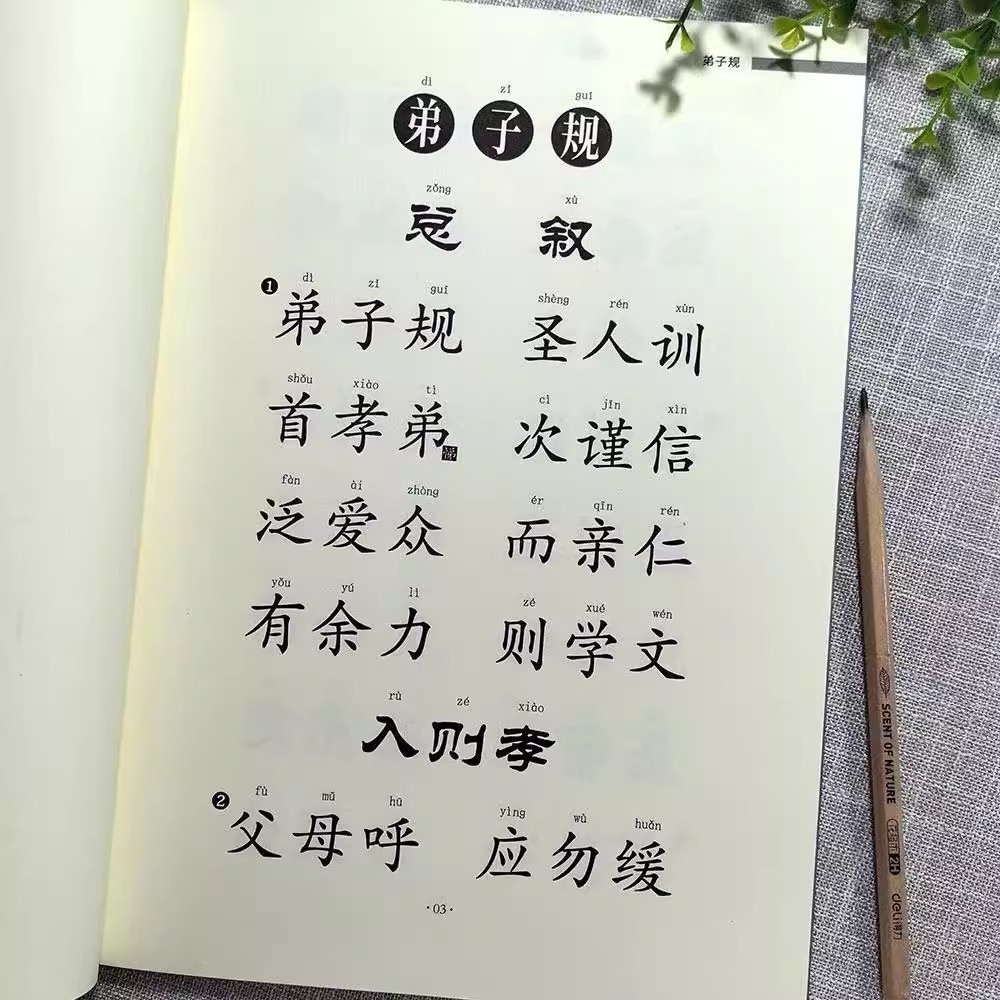 弟子规
dì zǐ guī
弟子规
zǒng xù
总叙
dì zǐ guī shèng rén xùn
❶弟子规 圣人训
shǒu xiào tì cì jǐn xìn
首孝弟悌 次谨信
fàn ài zhòng ér qīn rén
泛爱众 而亲仁
yǒu yú lì zé xué wén
有余力 则学文
rù zé xiào
入则孝
fù mǔ hū yìng wù huǎn
❷父母呼 应勿缓
·03·
SCENT OF NATURE
2H
deli得力